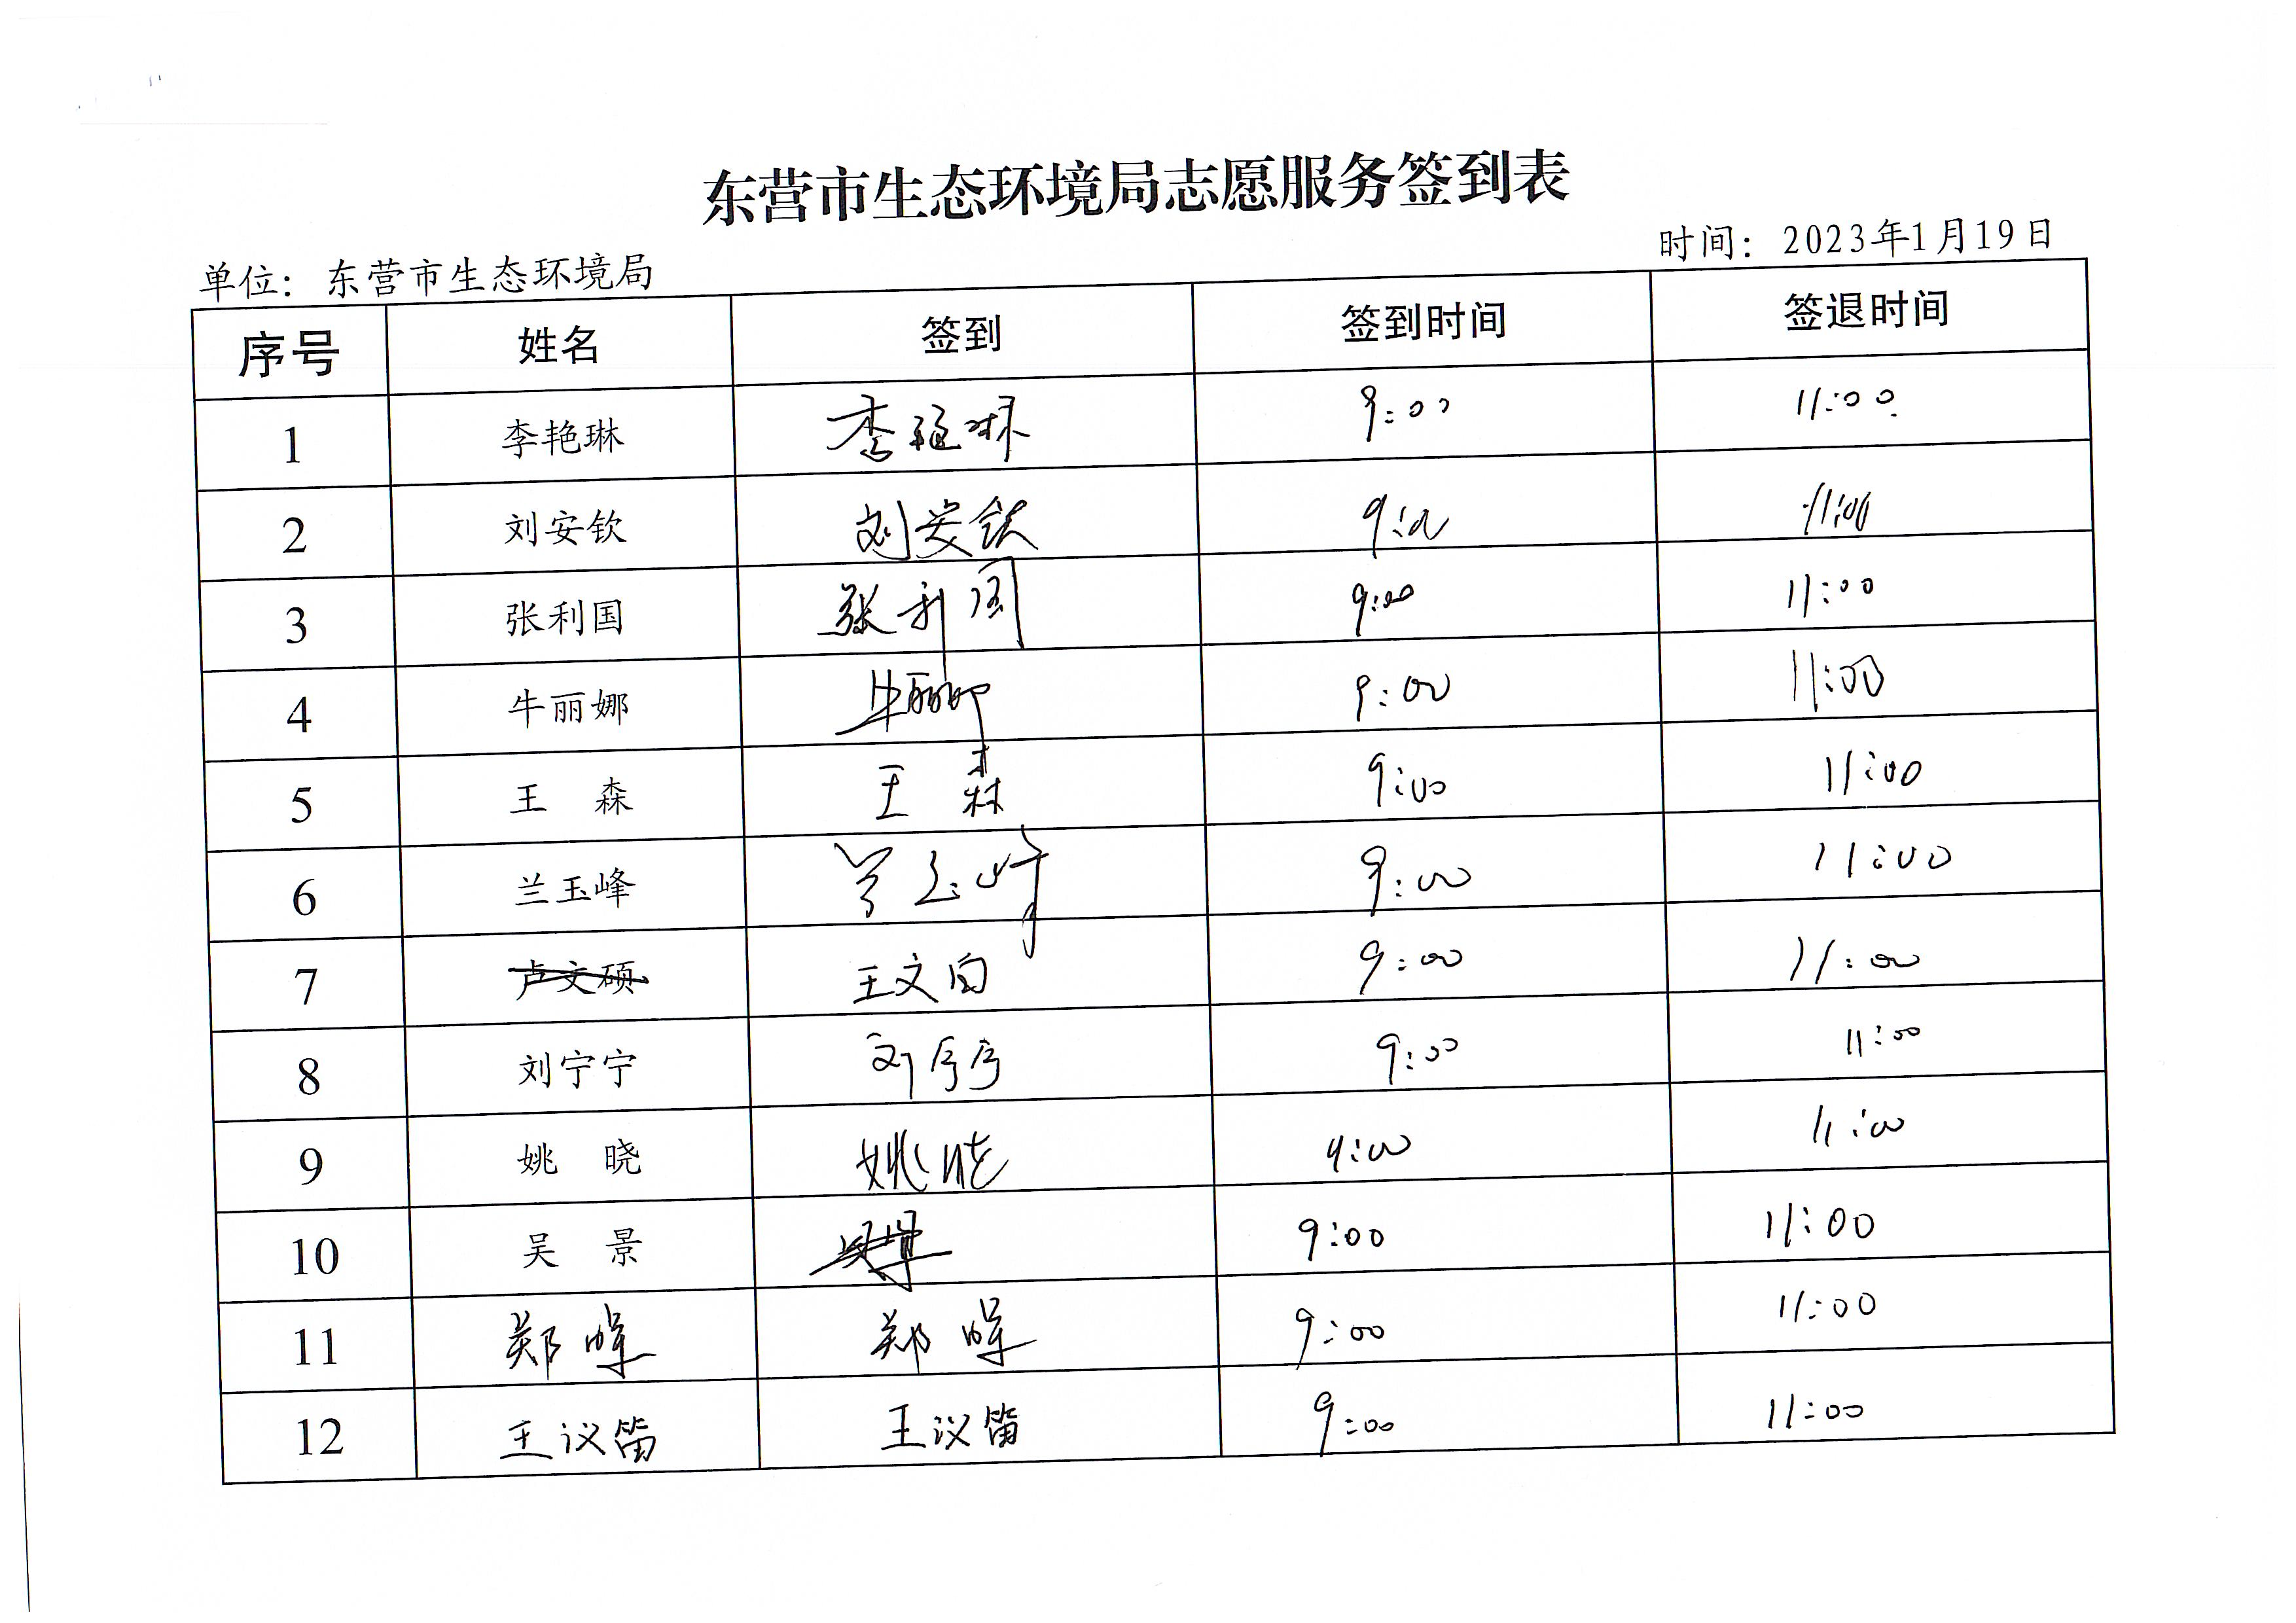 东营市生态环境局志愿服务签到表
单位：东营市生态环境局 时间：2023年1月19日
序号 姓名 签到 签到时间 签退时间
1 李艳琳 李艳琳 9:00 11:00
2 刘安钦 刘安钦 9:00 11:00
3 张利国 张利国 9:00 11:00
4 牛丽娜 牛丽娜 9:00 11:00
5 王 森 王 森 9:00 11:00
6 兰玉峰 兰玉峰 9:00 11:00
7 卢文硕 王文向 9:00 11:00
8 刘宁宁 刘宁宁 9:00 11:00
9 姚 晓 姚晓 9:00 11:00
10 吴 景 9:00 11:00
11 郑 9:00 11:00
12 王议笛 王议笛 9:00 11:00